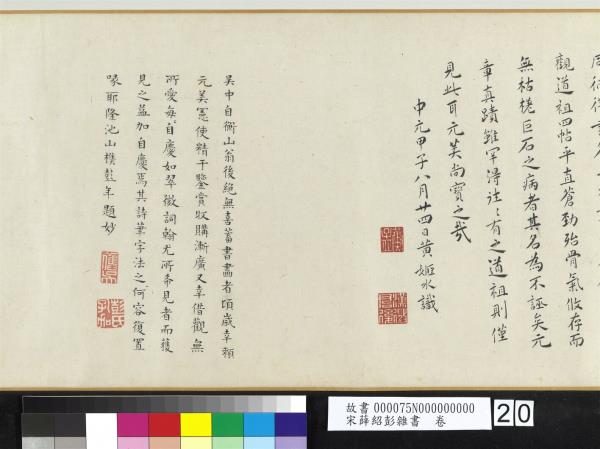 觀道祖四帖平直蒼勁殆骨氣攸存而
無枯槎巨石之病者其名為不誣矣元
章真蹟雖罕得往〻有之道祖則僅
見此耳元美尚寶之哉
中元甲子八月廿四日黃姬水識
吳中自衡山翁後絕無喜蓄書畫者頃歲幸賴
元美憲使精于鑒賞收購漸廣又幸借觀無
所愛每〻自慶如翠微詞翰尤所希見者而獲
見之益加自慶焉其詩筆字法之妙何容復置
喙耶隆池山樵彭年題
故書 000075N000000000
宋薛紹彭雜書 卷
20